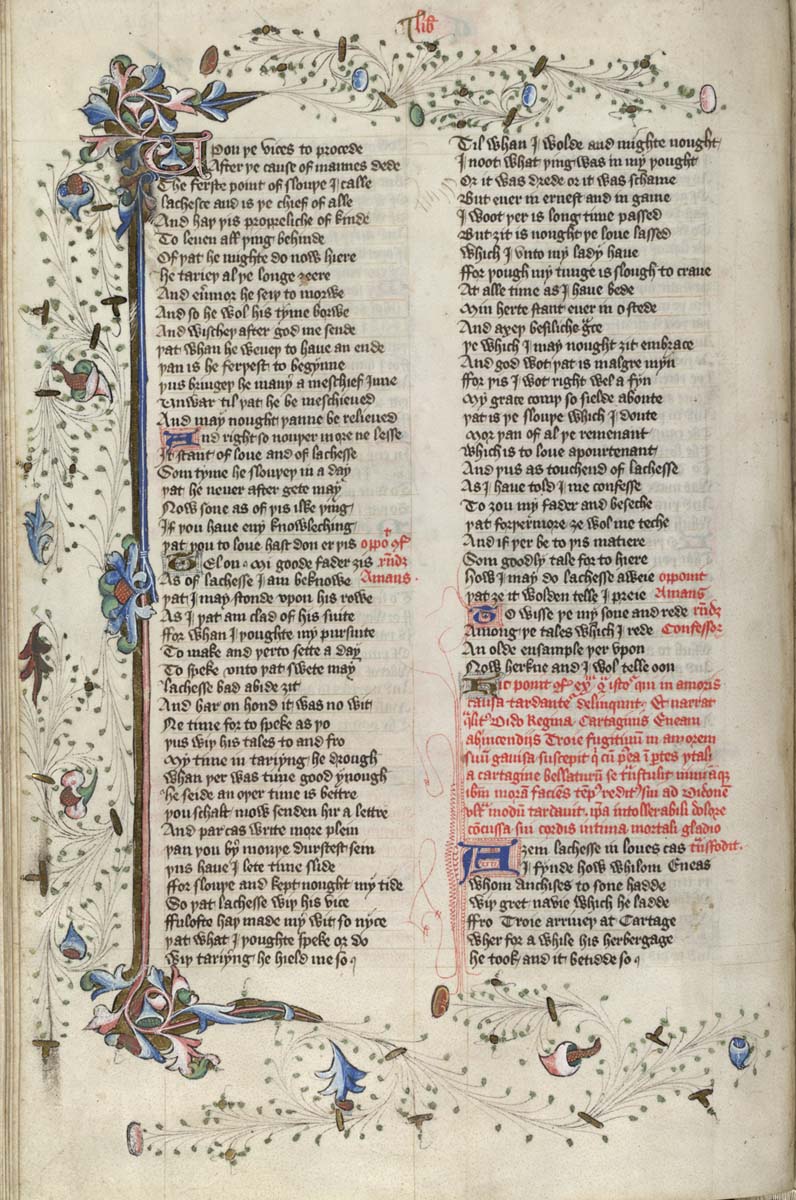 lib̄
Upon þe vices to procede
After þe cause of mannes dede
The ferste point of slouþe I calle
lachesce and is þe chief of alle
And haþ þis propreliche of kinde
To leuen all þing behinde
Of þat he mighte do now hiere
he tarieþ al þe longe ȝeere
And eu̅mor he seiþ to morwe
And so he wol his tyme borwe
And wischeþ after god me sende
þat whan he weneþ to haue an ende
þan is he ferþest to begynne
þus bringeþ he many a meschief Inne
Unwar til þat he be meschieued
And may nought þanne be relieued
And right so nouþer more ne lesse
It stant of loue and of lachesse
Som tyme he slouþeþ in a day
þat he neuer after gete may
Now sone as of þis ilke þing
If þou haue eny knowleching
þat þou to loue hast don er þis
Tel on . Mi goode fader ȝis
Amans .
As of lachesse I am beknowe
þat I may stonde vpon his rowe
As I þat am clad of his suite
ffor whan I þoughte my pursuite
To make and þerto sette a day
To speke vnto þat swete may
lachesse bad abide ȝit
And bar on hond it was no wit
Ne time for to speke as þo
þus wiþ his tales to and fro
My time in tariyng he drough
whan þer was time good ynough
he seide an oþer time is bettre
þou schalt mow senden hir a lettre
And par cas write more plein
þan þou by mouþe durstest sein
þus haue I lete time slide
ffor slouþe and kept nought my tide
So þat lachesse wiþ his vice
ffulofte haþ made my wit so nyce
þat what I þoughte speke or do
wiþ tariyng he hield me so
Til whan I wolde and mighte nought
I noot what þing was in my þought
Or it was drede or it was schame
But euer in ernest and in game
I woot þer is long time passed
But ȝit is nought þe loue lassed
which I vnto my lady haue
ffor þough my tunge is slough to craue
At alle time as I haue bede
Min herte stant euer in o stede
And axeþ besiliche g̅ce
þe which I may nought ȝit embrace
And god wot þat is malgre myn
ffor þis I wot right wel a fyn
My grace comþ so sielde aboute
þat is þe slouþe which I doute
Mor þan of al þe remenant
which is to loue apourtenant
And þus as touchend of lachesse
As I haue told I me confesse
To ȝou my fader and beseche
þat forþermore ȝe wol me teche
And if þer be to þis matiere
Som goodly tale for to hiere
how I may do lachesse aweie
þat ȝe it wolden telle I preie Amans
To wisse þe my sone and rede
Among þe tales which I rede Confessor
An olde ensample þer vpon
Now herkne and I wol telle oon
Hic ponit qui in amoris
causa tardante delinquunt . Et narrat
Dido Regina Cartaginis Eneam
ab incendiis Troie fugitiuum in amorem
suum gauisa suscepit
a cartagine
ad Didonem
modum tardauit . ip̅a intollerabili dolore
cōcussa sui cordis intima mortali gladio
tn̅sfodit .
Aȝein lachesse in loues cas
I fynde how whilom Eneas
whom Anchises to sone hadde
wiþ gret nauie which he ladde
ffro Troie arriueþ at Cartage
wher for a while his herbergage
he took and it betidde so